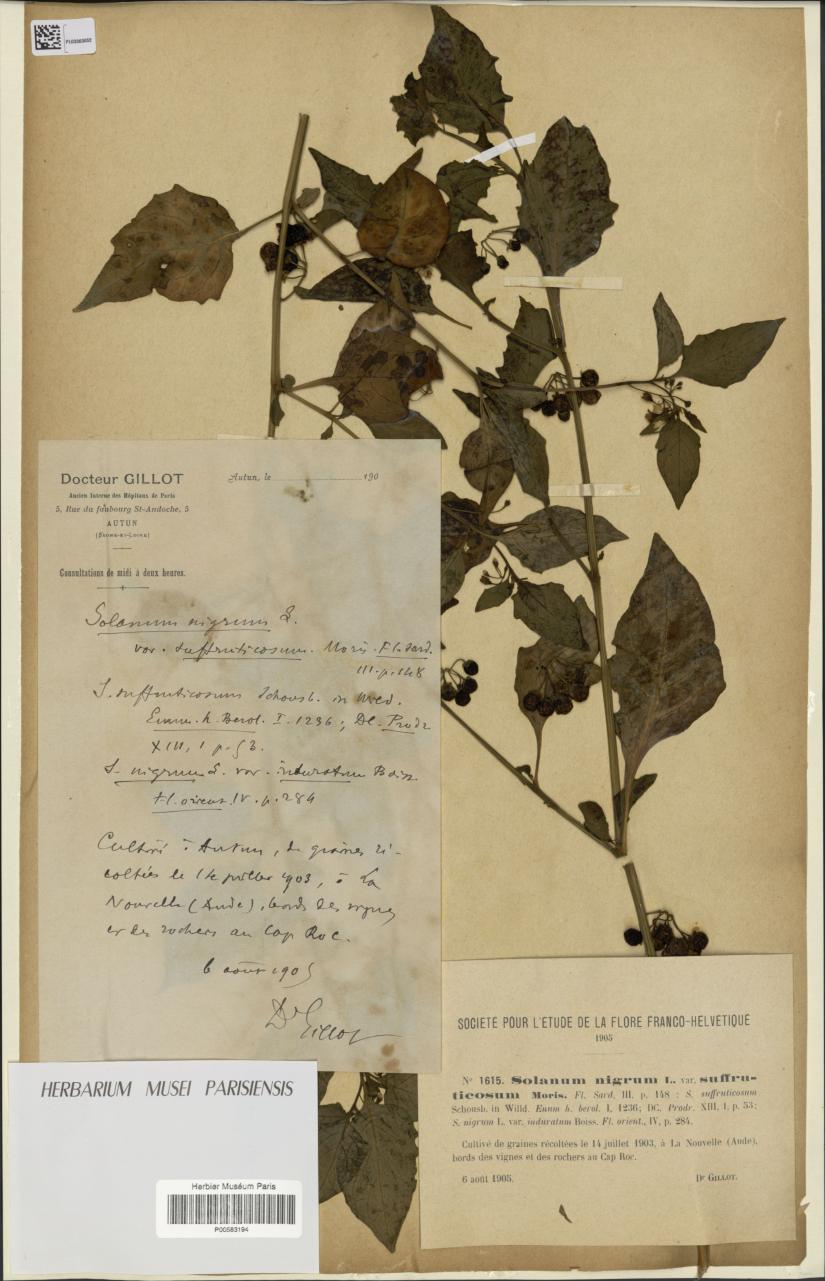 P03383652
Docteur GILLOT
Ancien Interne des Hôpitaux de Paris
5, Rue du faubourg St-Andoche, 5
AUTUN
(SAONE-ET-LOIRE)
Consultations de midi à deux heures.
Autun, le 190
Solanum nigrum L.
var. suffruticosum. Moris. Fl. sard.
III. p. 148
S. suffruticosum Schousb. in Wild.
Enum. h. Berol. I. 1236 ; DC. Prodr
XIII, 1 p. 53.
S. nigrum L. var. induratum Boiss.
Fl. orient. IV. p. 284
Cultivé à Autun, de graines ré-
coltées le 14 juillet 1903, à La
Nouvelle (Aude), bords des vignes
et des rochers au Cap Roc.
6 août 1905
Dr Gillot
SOCIÉTÉ POUR L'ÉTUDE DE LA FLORE FRANCO-HELVÉTIQUE
1905
No 1615. Solanum nigrum L. var. suffru-
ticosum Moris. Fl. Sard, III, p. 148 ; S. suffruticosum
Schousb. in Willd. Enum h. berol. I, 1236; DC. Prodr. XIII, 1, p. 53;
S. nigrum L. var. induratum Boiss. Fl. orient., IV, p. 284.
Cultivé de graines récoltées le 14 juillet 1903, à La Nouvelle (Aude),
bords des vignes et des rochers au Cap Roc.
6 août 1905. Dr GILLOT.
HERBARIUM MUSEI PARISIENSIS
Herbier Muséum Paris
P00583194